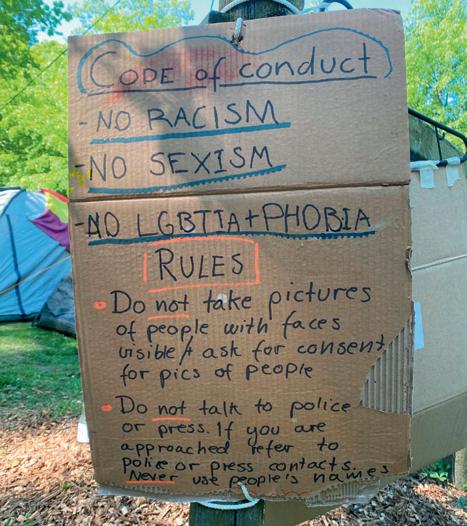 CODE of conduct
- NO RACISM
- NO SEXISM
- NO LGBTIA+PHOBIA
RULES
• Do not take pictures
of people with faces
visible / + ask for consent
for pics of people
• Do not talk to police
or press. If you are
approached refer to
police or press contacts
Never use people's names